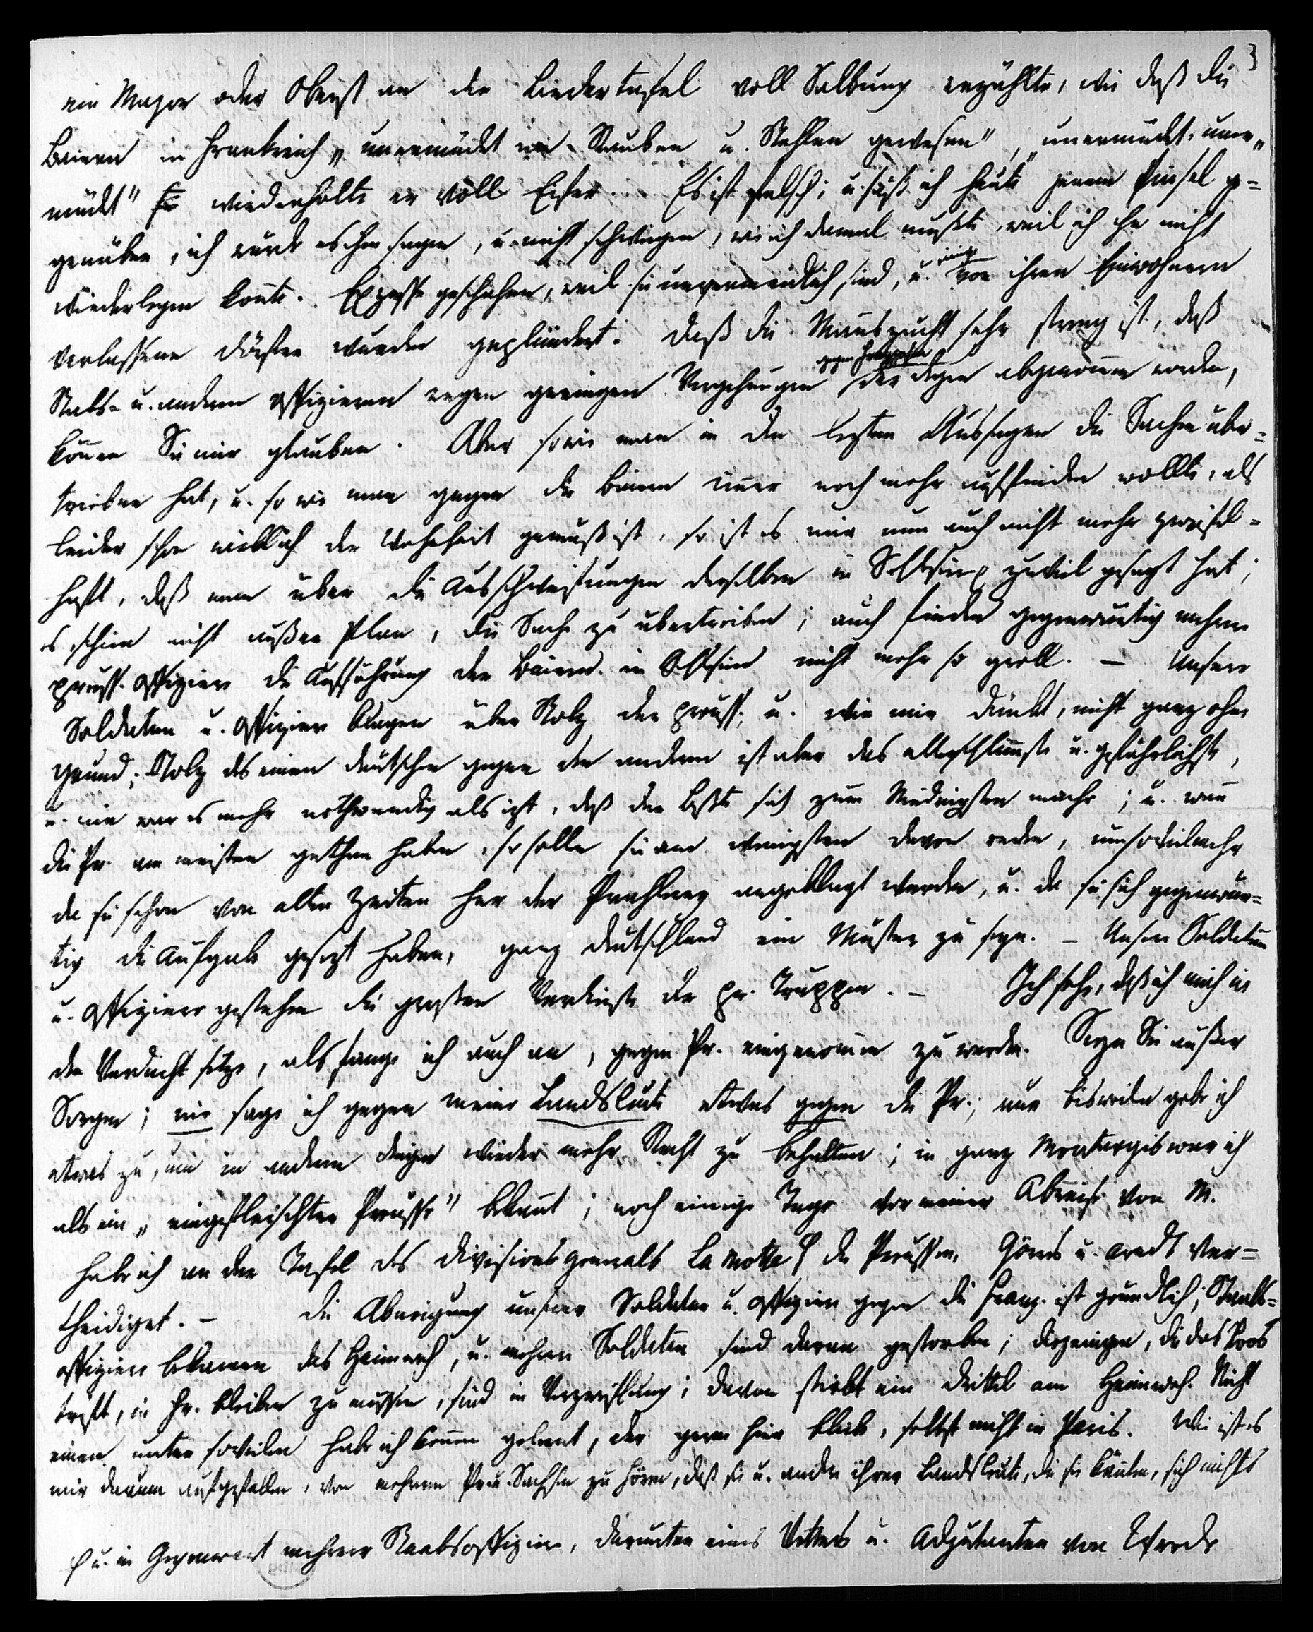 3
ein Major oder Oberst an der Liedertafel voll Salbung erzählte, wie daß die
Baiern in Frankreich „unermüdet im Rauben u. Stehlen gewesen", „unermüdet, uner„
müdet" wiederholte er voll Eifer. Es ist falsch; u. säß ich heute jenem Pinsel ge=
genüber, ich würde es ihm sagen, u. nicht schweigen, wie ich damal mußte, weil ich ihn nicht
wiederlegen konte. Exzesse geschahen, weil sie unvermeidlich sind, u. einige von ihren Einwohnern
verlassene Dörfer wurden geplündert. Daß die Manszucht sehr streng ist, daß
Stabs- u. andern Offizieren wegen geringen Vergehungen der Degen abgenommen worden,
können Sie mir glauben. Aber sowie man in den lezten Aussagen die Sachen über=
trieben hat, u. so wie man gegen die Baiern immer noch mehr auffinden wollte, als
leider schon wirklich der Wahrheit gemäß ist, so ist es mir nun auch nicht mehr zweifel=
haft, daß man über die Ausschweifungen derselben in Schlesien zuviel gesagt hat;
es schien nicht außer Plan, die Sache zu übertreiben; auch finden gegenwärtig mehrere
preuss. Offizier die Aufführung der Baiern in Schlesien nicht mehr so grell. — Unsere
Soldaten u. Offizier klagen über Stolz der preuss. u. wie mir dünkt, nicht ganz ohne
Grund; Stolz des einen Deutschen gegen den andern ist aber das allerschlimmste u. gefährlichste,
u. nie war es mehr nothwendig als izt, daß der Beste sich zum Niedrigsten mache; u. wenn
die Pr. am meisten gethan haben, so sollen sie am wenigsten davon reden, umsovielmehr
da sie schon von alten Zeiten her der Prahlerey angeklagt werden, u. da sie sich gegenwär=
tig die Aufgabe gesezt haben, ganz Deutschland ein Muster zu seyn. — Unsere Soldaten
u. Offiziere gestehen die großen Verdienste der pr. Truppen. — Ich sehe, daß ich mich in
den Verdacht setze, als fange ich auch an, gegen Pr. eingenomen zu werden. Seyen Sie außer
Sorgen; nie sage ich gegen meine Landsleute etwas gegen die Pr.; nur bisweilen gebe ich
etwas zu, um in andern Dingen wieder mehr Recht zu behalten; in ganz Montargis war ich
als ein „eingefleischter Preusse" bekant; noch einige Tage vor meiner Abreise von M.
habe ich an der Tafel des Divisionsgenerals La Motte die Preussen, Görres u. Arndt ver=
theidiget. — Die Abneigung unserer Soldaten u. Offizier gegen die Franz. ist gründlich; Stabs=
offizier bekamen das Heimweh, u. mehrere Soldaten sind daran gestorben; diejenigen, die das Loos
trift, in Fr. bleiben zu müssen, sind in Verzweiflung; davon stirbt ein Drittel am Heimweh. Nicht
einen unter sovielen habe ich kennen gelernt, der gern hier bliebe, selbst nicht in Paris. Wie ist es
mir darum aufgefallen, von mehrern Preu. Sachsen zu hören, daß sie u. andre ihrer Landsleute, die sie känten, sich nichts
u. in Gegenwart mehrerer Staabsoffiziere, darunter eines Vetters u. Adjutanten von Wrede